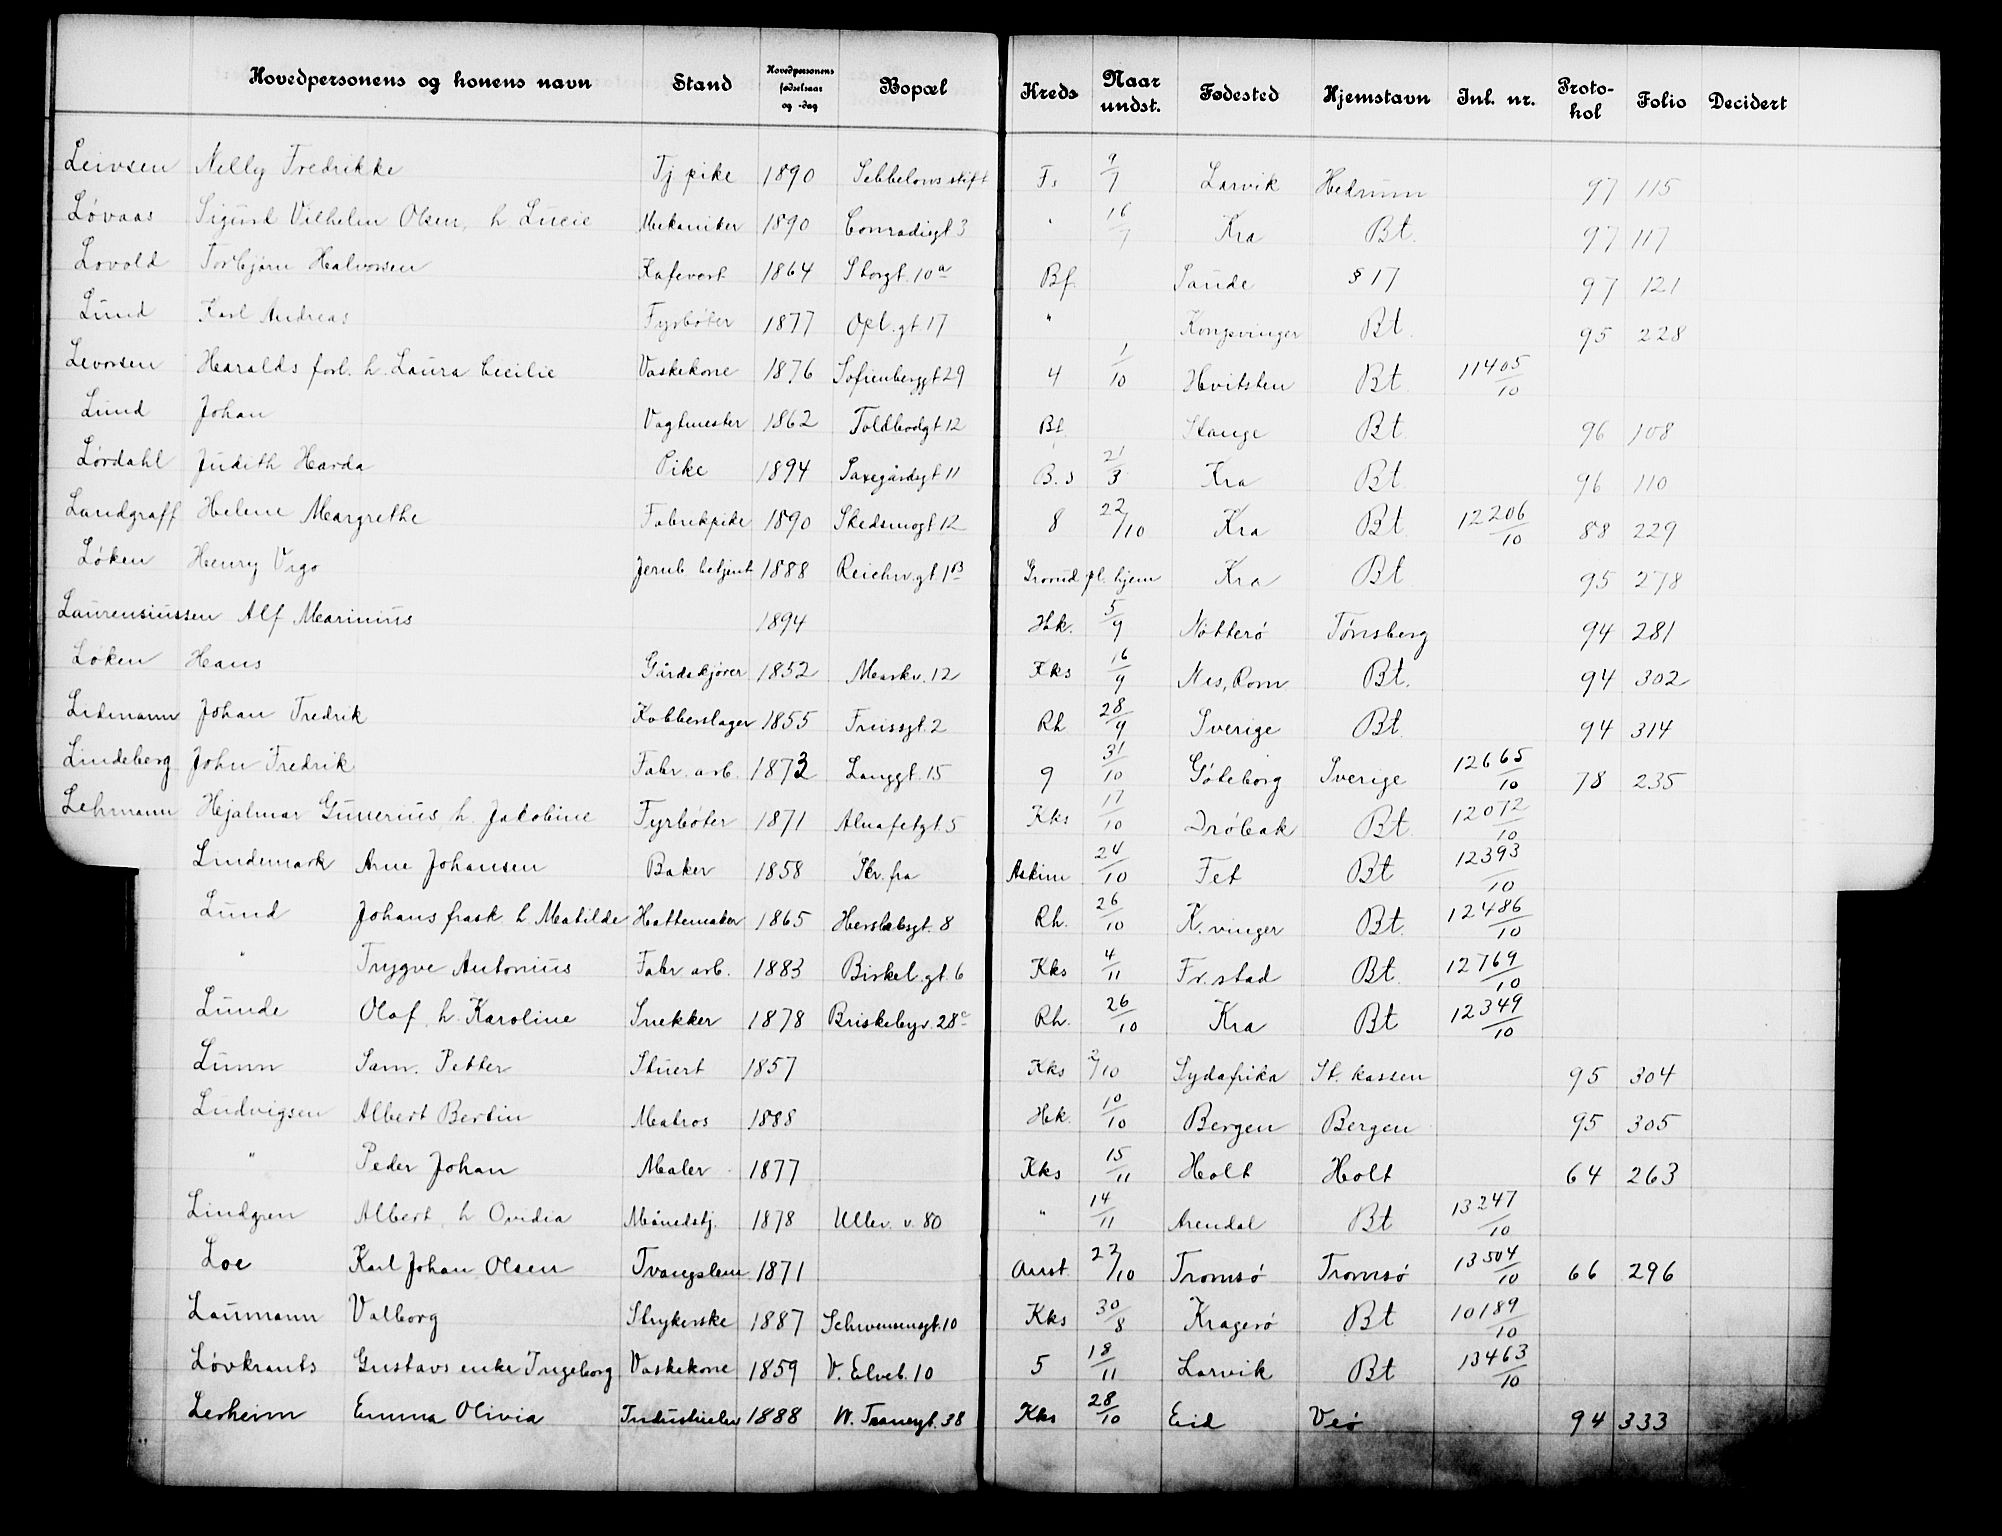 Hovedpersonens og konens navn Stand Hovedpersonens fødselsaar og -dag Bopæl Kreds Naar undst. Fødested Hjemstavn Inl. nr. Protokol Folio Decidert
Leivsen Nelly Fredrikke Tj pike 1890 Sebbelows stift Fs 9/7 Larvik Hedrum 97 115
Løvaas Sigurd Vilhelm Olsen, h Lucie Mekaniker 1890 Conradigt 3 " 16/7 Kra Bt. 97 117
Lovold Torbjørn Halvorsen Kafevert 1864 Storgt. 10a Bf. Saude § 17 97 121
Lund Karl Andreas Fyrbøter 1877 Opl. gt 17 " Kongsvinger Bt. 95 228
Levorsen Haralds forl. h. Laura Cecilie Vaskekone 1876 Sofienberggt 29 4 1/10 Hvitsten Bt. 11405/10
Lund Johan Vagtmester 1862 Toldbodgt 12 Bf. Stange Bt. 96 108
Lørdahl Judith Harda Pike 1894 Saxegårdsgt 11 B.s 21/3 Kra Bt. 96 110
Landgraff Helene Margrethe Fabrikpike 1890 Skedsmogt 12 8 22/10 Kra Bt 12206/10 88 229
Løken Henry Vigo Jernb betjent 1888 Reichw. gt 1B Grønnd pl. hjem Kra Bt. 95 278
Laurensiussen Alf Marinius 1894 Hk. 5/9 Nøtterø Tønsberg 94 281
Løken Hans Gårdskjører 1852 Markv. 12 Kks 16/9 Nes, Rom Bt. 94 302
Ledmann Johan Fredrik Kobberslager 1855 Friissgt. 2 Rh 28/9 Sverige Bt. 94 314
Lindeberg John Fredrik Fabr. arb. 1873 Langgt. 15 9 31/10 Gøteborg Sverige 12665/10 78 235
Lehmann Hjalmar Gunerius, h. Jakobine Fyrbøter 1871 Alnafetgt. 5 Kks 17/10 Drøbak Bt. 12072/10
Lindemark Arne Johansen Baker 1858 Skr. fra Askim 24/10 Fet Bt 12393/10
Lund Johans frask h Matilde Hattemaker 1865 Herslebsgt. 8 Rh. 26/10 K. vinger Bt. 12486/10
" Trygve Antonius Fabr arb. 1883 Birkel. gt. 6 Kks 4/11 Fr. stad Bt. 12769/10
Lunde Olaf, h. Karoline Snekker 1878 Briskebyv. 28c Rh. 26/10 Kra Bt 12349/10
Lunn Sam. Petter Stuert 1857 Kks 2/10 Sydafrika St. kassen 95 304
Ludvigsen Albert Bertin Matros 1888 Hk. 10/10 Bergen Bergen 95 305
" Peder Johan Maler 1877 Kks 15/11 Holt Holt 64 263
Lindgren Albert, h Ovidia Månedstj. 1878 Ullev. v. 80 " 14/11 Arendal Bt 13247/10
Loe Karl Johan Olsen Tvangslem 1871 Anst. 22/10 Tromsø Tromsø 13504/10 66 296
Laumann Valborg Strykerske 1887 Schwensensgt. 10 Kks 30/8 Kragerø Bt 10189/10
Løvkrants Gustavs enke Ingeborg Vaskekone 1859 V. Elveb. 10 5 18/11 Larvik Bt 13463/10
Lerheim Emma Olivia Industrielev 1888 W. Tranesgt. 38 Kks 28/10 Eid Veø 94 333